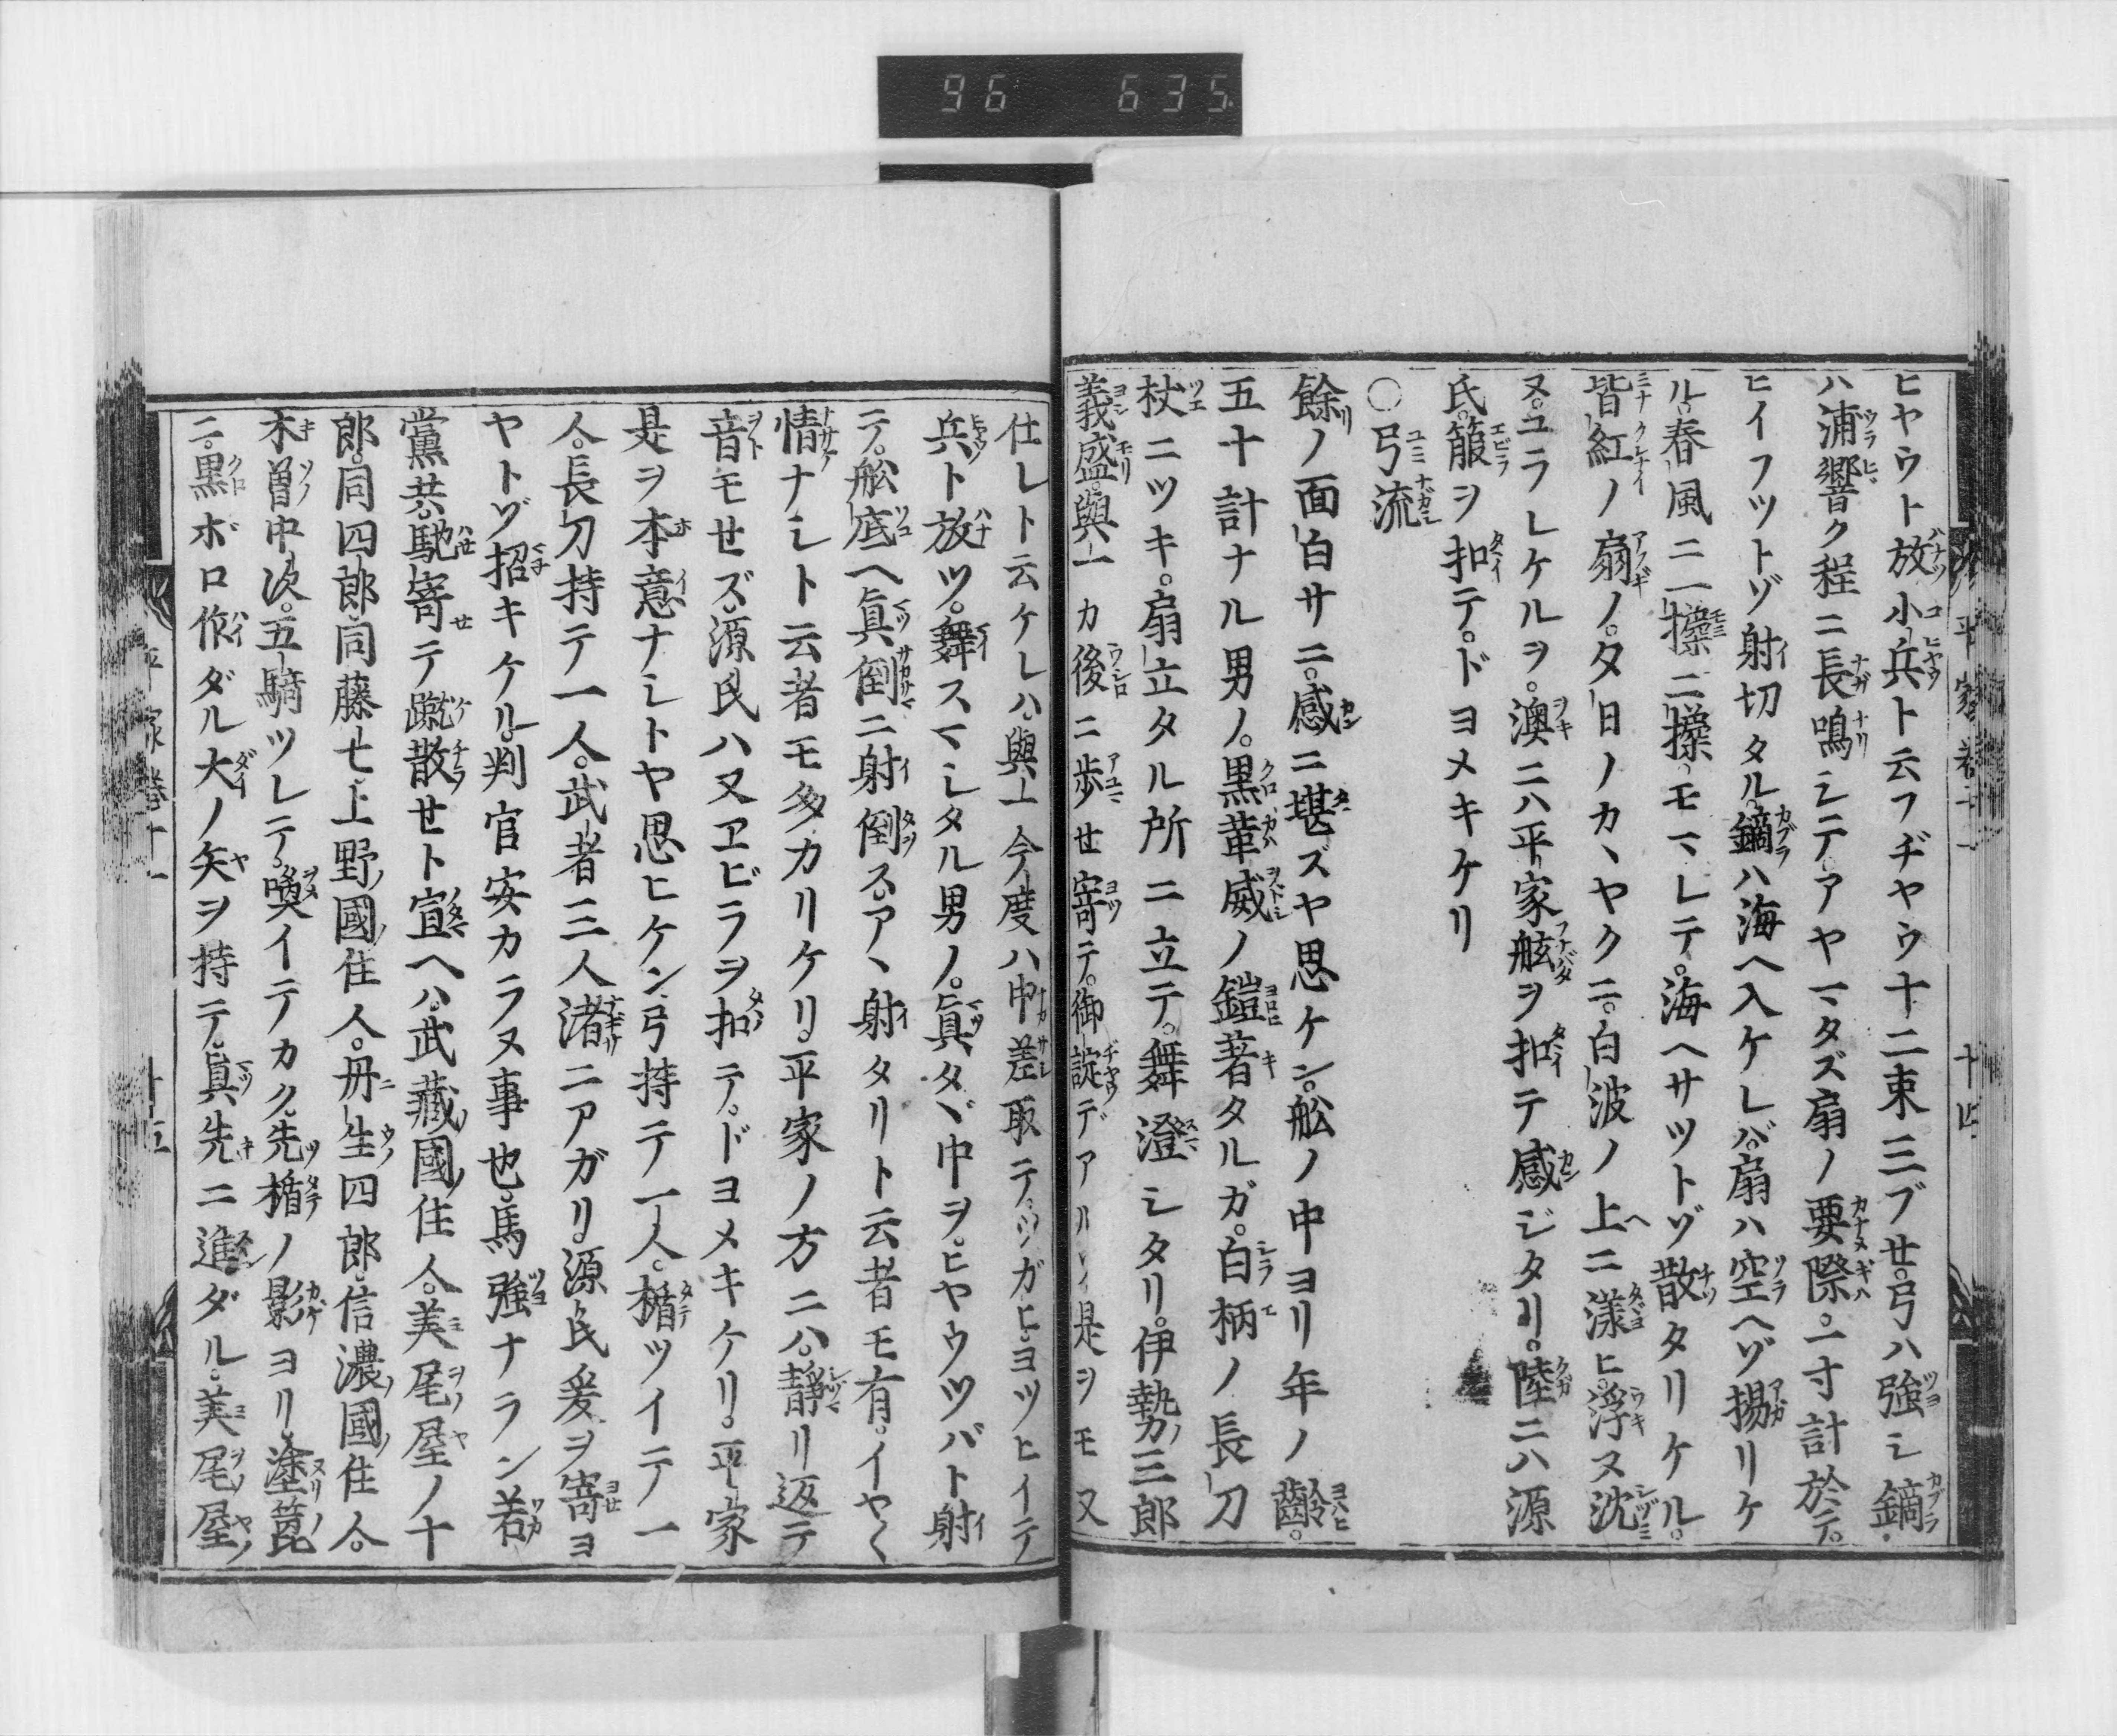 96 635
平家巻十一 十四
ヒヤウト放小兵ト云フヂヤウ十二束三ブセ。弓ハ強シ鏑。
ハ浦響ク程ニ長鳴シテ。アヤマタズ扇ノ要際。一寸計於テ。
ヒイフツトゾ射切タル。鏑ハ海ヘ入ケレバ。扇ハ空ヘゾ揚リケ
ル。春風ニ一揉二揉。モマレテ。海ヘサツトゾ散タリケル。
皆紅ノ扇ノ。夕日ノカヽヤクニ。白波ノ上ニ漾ヒ。浮ヌ沈
ヌ。ユラレケルヲ。澳ニハ平家舷ヲ扣テ感ジタリ。陸ニハ源
氏。箙ヲ扣テ。ドヨメキケリ
○弓流
餘ノ面白サニ。感ニ堪ズヤ思ケン。舩ノ中ヨリ年ノ齡。
五十計ナル男ノ。黒革威ノ鎧著タルガ。白柄ノ長刀
杖ニツキ。扇立タル所ニ立テ。舞澄シタリ。伊勢三郎
義盛。與一カ後ニ歩セ寄テ。御諚デアルゾ是ヲモ又
仕レト云ケレハ。與一今度ハ中差取テ。ツガヒ。ヨツヒイテ
兵ト放ツ。舞スマシタル男ノ。眞タヾ中ヲ。ヒヤウツバト射
テ。舩底ヘ眞倒ニ射倒ス。アヽ射タリト云者モ有。イヤ〱
情ナシト云者モ多カリケリ。平家ノ方ニハ。靜リ返テ
音モセズ。源氏ハ又ヱビラヲ扣テ。ドヨメキケリ。平家
是ヲ本意ナシトヤ思ヒケン。弓持テ一人。楯ツイテ一
人。長刀持テ一人。武者三人渚ニアガリ。源氏爰ヲ寄ヨ
ヤトゾ招キケル。判官安カラヌ事也。馬強ナラン若
黨共。馳寄テ蹴散セト宣ヘハ。武藏國住人。美尾屋ノ十
郎。同四郎。同藤七。上野國住人。丹生四郎。信濃國住人。
木曽中次。五騎ツレテ。喚イテカク。先楯ノ影ヨリ。塗箆
ニ。黒ボロ作ダル大ノ矢ヲ持テ。眞先ニ進ダル。美尾屋
平家巻十一 十五